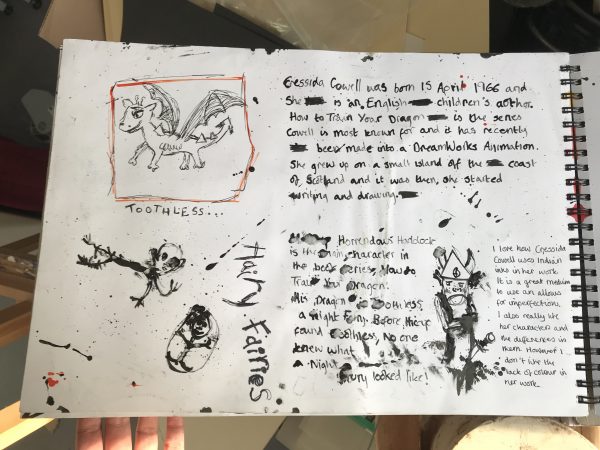 TOOTHLESS...
Hairy Fairies
Cressida Cowell was born 15 April 1966 and
She is an English children's author.
How to Train Your Dragon is the series
Cowell is most known for and it has recently
been made into a DreamWorks Animation.
She grew up on a small island off the coast
of Scotland and it was then, she started
writing and drawing.
Horrendous Haddock
is the main character in
the book series, How to
Train Your Dragon.
His Dragon is Toothless
a night Fury. Before, hiccup
found Toothless, No one
knew what
a Night
Fury looked like!
I love how Cressida
Cowell uses Indian
inks in her work.
It is a great medium
to use an allows
for imperfection.
I also really like
her characters and
the differences in
them. However I
don't like the
lack of colour in
her work.